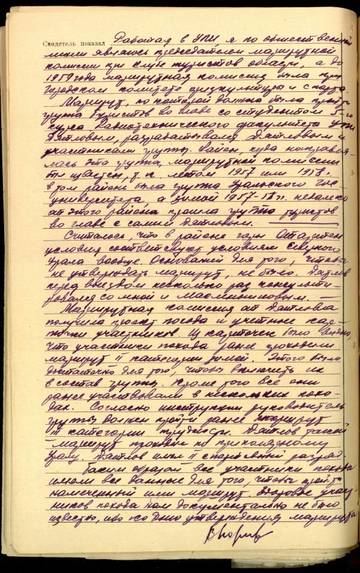 Свидетель показал Работая в УПИ я по общественной
линии являюсь председателем маршрутной
комиссии при клубе туристов области, а до
1959 года маршрутная комиссия была при
городском комитете физкультуры и спорта
Маршрут, по которой должна была пройти
группа туристов во главе со студентом 5-го
курса радиотехнического факультета УПИ
Дятловым, разработывался Дятловым и
участниками группы. Район куда направля-
лась эта группа маршрутной комиссии
был известен, т.к. летом 1957 или 1958 г.
в том районе была группа Уральского Гос
университета, а зимой 1957-58 г. недалеко
от этого района прошла группа туристов
во главе с самим Дятловым.
Считалось что в районе горы Отортен
условия соответствуют условиям северного
Урала вообще. Оснований для того, чтобы
не утверждать маршрут, не было. Дятлов
перед выездом несколько раз консульти-
ровался со мной и Масленниковым.
Маршрутная комиссия от Дятлова
получила проект похода и учетные кар-
точки участников. Из карточек было видно,
что участники похода ранее проходили
маршрут II категории зимой. Этого было
достаточно для того чтобы включить их
в состав группы. Кроме того все они
ранее участвовали в нескольких похо-
дах. Согласно инструкции руководитель
группы должен пройти ранее маршрут
II категории трудности. Дятлов такой
маршрут прошел по приполярному
Уралу. Дятлов имел II спортивный разряд.
Таким образом все участники похода
имели все данные для того, чтобы пройти
намеченный ими маршрут. Здоровье участ-
ников похода нам документально не было
известно, ибо ко дню утверждения маршрута